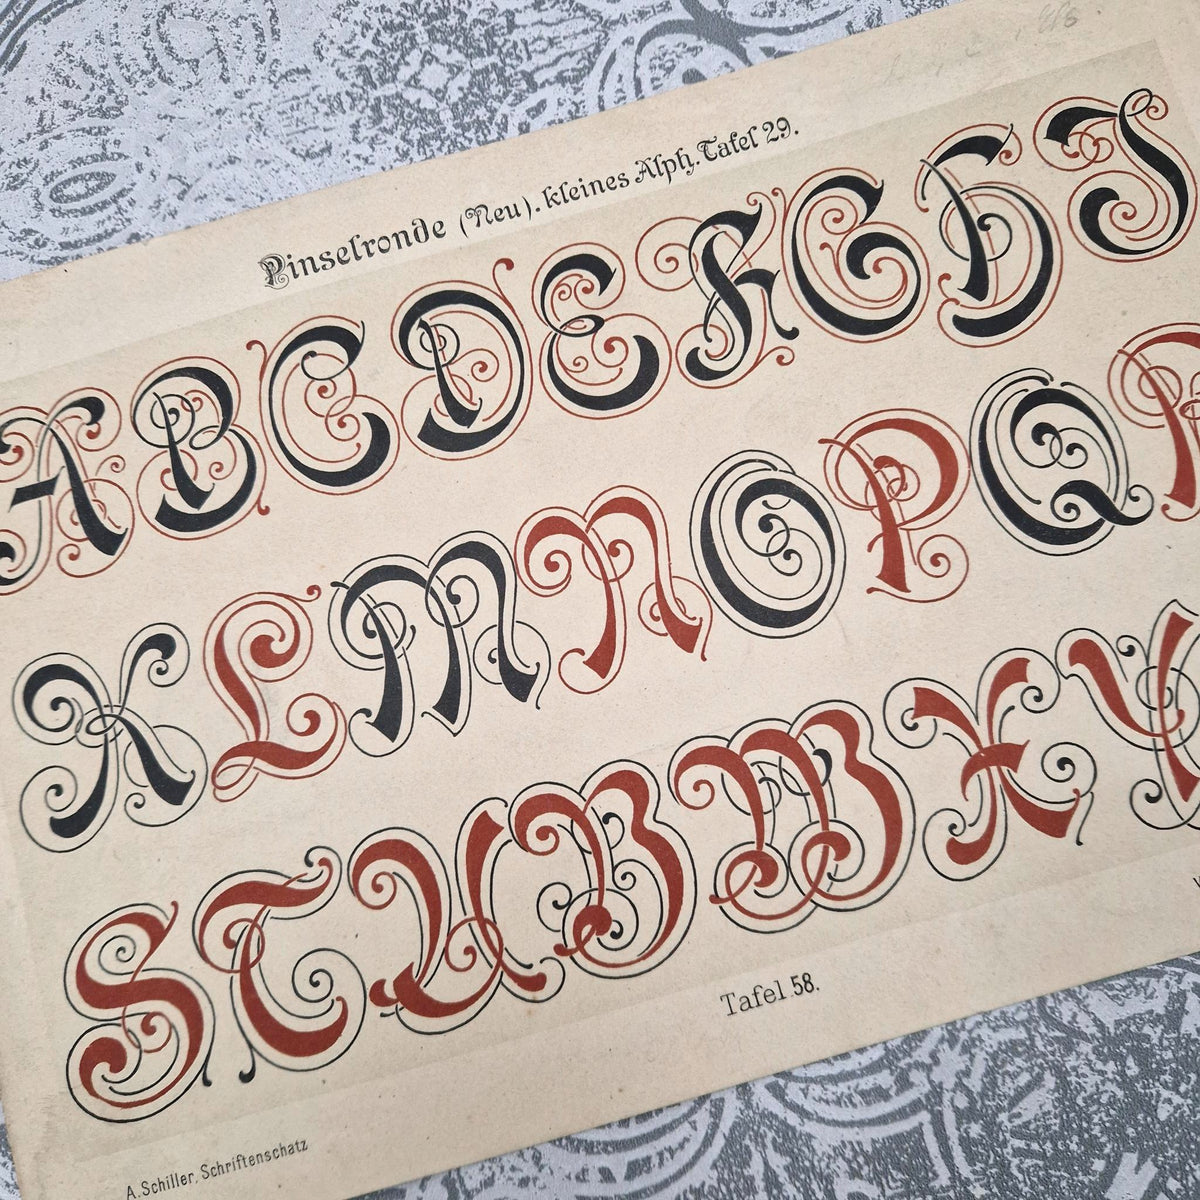 Pinselronde (Neu). kleines Alph. Tafel 29.
A B C D E F G H I
K L M N O P Q R
S T U V W X Y
Tafel 58.
A. Schiller, Schriftenschatz